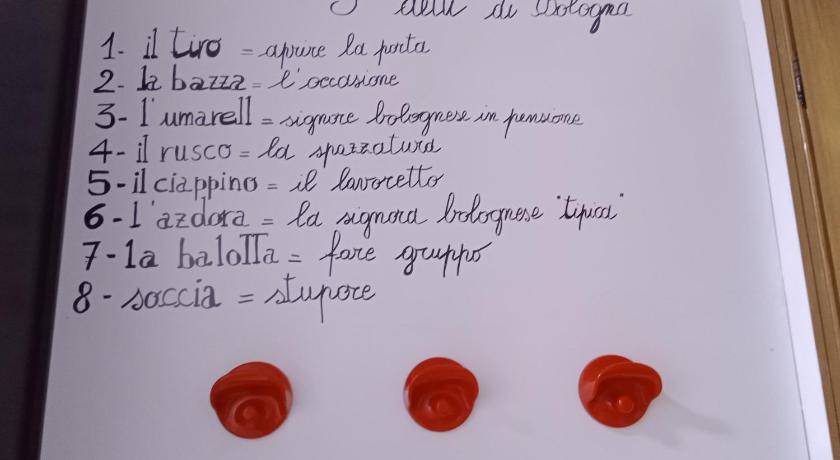 di Bologna
1- il tiro = aprire la porta
2- la bazza = l'occasione
3- l'umarell = signore bolognese in pensione
4- il rusco = la spazzatura
5- il ciappino = il lavoretto
6- l'azdora = la signora bolognese "tipica"
7- la balotta = fare gruppo
8- soccia = stupore